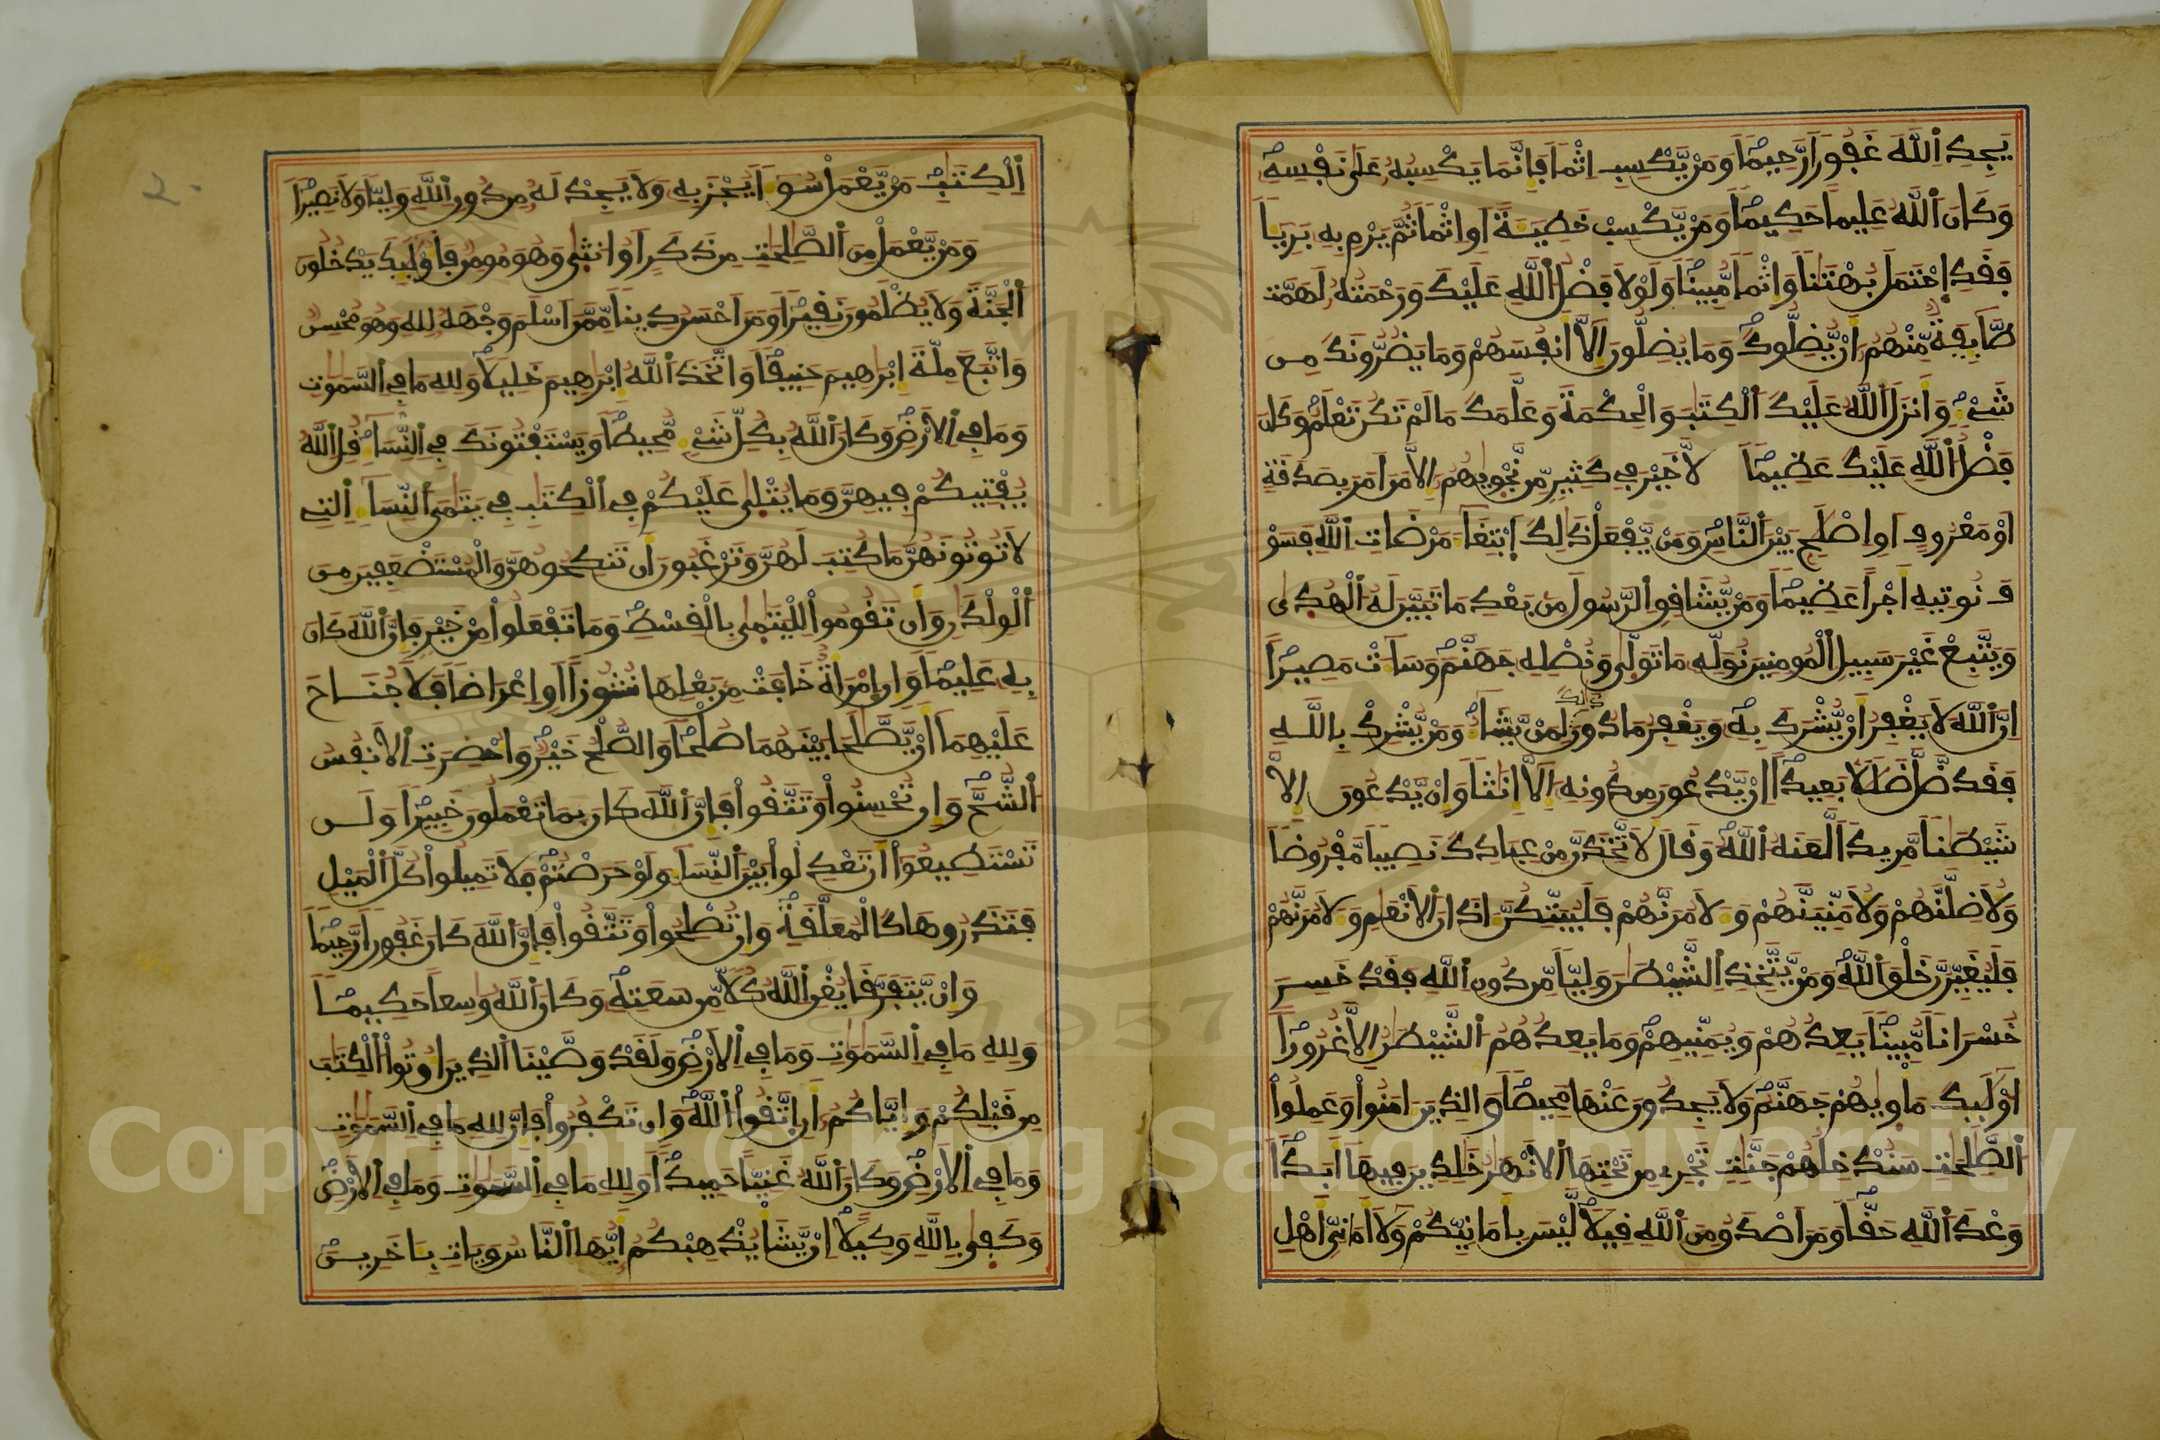 يَجِدِ اِللَّهَ غَفُوراً رَّحِيماً وَمَنْ يَّكْسِبِ اِثْماً فَإِنَّمَا يَكْسِبُهُ عَلَىٰ نَفْسِهِ
وَكَانَ اَللَّهُ عَلِيماً حَكِيماً وَمَنْ يَّكْسِبْ خَطِيـَٔةً اَوِ اِثْماً ثُمَّ يَرْمِ بِهِ بَرِيـٓـٔاً
فَقَدِ اِحْتَمَلَ بُهْتَٰناً وَاِثْماً مُّبِيناً وَلَوْلَا فَضْلُ اُللَّهِ عَلَيْكَ وَرَحْمَتُهُ لَهَمَّت
طَّآئِفَةٌ مِّنْهُمُ أَنْ يُّضِلُّوكَ وَمَا يُضِلُّونَ إِلَّا أَنفُسَهُمْ وَمَا يَضُرُّونَكَ مِن
شَيْءٍ وَأَنزَلَ اَللَّهُ عَلَيْكَ اَلْكِتَٰبَ وَالْحِكْمَةَ وَعَلَّمَكَ مَا لَمْ تَكُن تَعْلَمُ وَكَانَ
فَضْلُ اُللَّهِ عَلَيْكَ عَظِيماً لَّا خَيْرَ فِي كَثِيرٍ مِّن نَّجْوٜيٰهُمُ إِلَّا مَنَ اَمَرَ بِصَدَقَةٍ
اَوْ مَعْرُوفٍ اَوِ اِصْلَٰحٍ بَيْنَ اَلنَّاسِ وَمَنْ يَّفْعَلْ ذَٰلِكَ اَبْتِغَآءَ مَرْضَاتِ اِللَّهِ فَسَوْ
فَ نُوتِيهِ أَجْراً عَظِيماً وَمَنْ يُّشَاقِقِ اِلرَّسُولَ مِنۢ بَعْدِ مَا تَبَيَّنَ لَهُ اُلْهُدَىٰ
وَيَتَّبِعْ غَيْرَ سَبِيلِ اِلْمُومِنِينَ نُوَلِّهِ مَا تَوَلَّىٰ وَنُصْلِهِ جَهَنَّمَ وَسَآءَتْ مَصِيراً
اِنَّ اَللَّهَ لَا يَغْفِرُ أَنْ يُّشْرَكَ بِهِ وَيَغْفِرُ مَا دُونَ ذَٰلِكَ لِمَنْ يَّشَآءُ وَمَنْ يُّشْرِكْ بِاللَّهِ
فَقَد ضَّلَّ ضَلَٰلاً بَعِيداً إِنْ يَّدْعُونَ مِن دُونِهِ إِلَّا إِنَٰثاً وَإِنْ يَّدْعُونَ إِلَّا
شَيْطَٰناً مَّرِيداً لَّعَنَهُ اُللَّهُ وَقَالَ لَأَتَّخِذَنَّ مِنْ عِبَادِكَ نَصِيباً مَّفْرُوضاً
وَلَأُضِلَّنَّهُمْ وَلَأُمَنِّيَنَّهُمْ وَلَأٓمُرَنَّهُمْ فَلَيُبَتِّكُنَّ ءَاذَانَ اَلَانْعَٰمِ وَلَأٓمُرَنَّهُمْ
فَلَيُغَيِّرُنَّ خَلْقَ اَللَّهِ وَمَنْ يَّتَّخِذِ اِلشَّيْطَٰنَ وَلِيّاً مِّن دُونِ اِللَّهِ فَقَدْ خَسِرَ
خُسْرَاناً مُّبِيناً يَعِدُهُمْ وَيُمَنِّيهِمْ وَمَا يَعِدُهُمُ اُلشَّيْطَٰنُ إِلَّا غُرُوراً
اُوْلَٰٓئِكَ مَأْوٜيٰهُمْ جَهَنَّمُ وَلَا يَجِدُونَ عَنْهَا مَحِيصاً وَالذِينَ ءَامَنُواْ وَعَمِلُواْ
اُلصَّٰلِحَٰتِ سَنُدْخِلُهُمْ جَنَّٰتٍ تَجْرِي مِن تَحْتِهَا اَلَانْهَٰرُ خَٰلِدِينَ فِيهَا أَبَداً
وَعْدَ اَللَّهِ حَقّاً وَمَنَ اَصْدَقُ مِنَ اَللَّهِ قِيلاً لَّيْسَ بِأَمَانِيِّكُمْ وَلَا أَمَانِيِّ أَهْلِ
اِلْكِتَٰبِ مَنْ يَّعْمَلْ سُوٓءاً يُجْزَ بِهِ وَلَا يَجِدْ لَهُ مِن دُونِ اِللَّهِ وَلِيّاً وَلَا نَصِيراً
وَمَنْ يَّعْمَلْ مِنَ اَلصَّٰلِحَٰتِ مِن ذَكَرٍ اَوُ ا۟نثَىٰ وَهُوَ مُومِنٌ فَأُوْلَٰٓئِكَ يَدْخُلُونَ
اَلْجَنَّةَ وَلَا يُظْلَمُونَ نَقِيراً وَمَنَ اَحْسَنُ دِيناً مِّمَّنَ اَسْلَمَ وَجْهَهُ لِلهِ وَهُوَ مُحْسِنٌ
وَاتَّبَعَ مِلَّةَ إِبْرَٰهِيمَ حَنِيفاً وَاتَّخَذَ اَللَّهُ إِبْرَٰهِيمَ خَلِيلاً وَلِلهِ مَا فِي اِلسَّمَٰوَٰتِ
وَمَا فِي اِلَارْضِ وَكَانَ اَللَّهُ بِكُلِّ شَيْءٍ مُّحِيطاً وَيَسْتَفْتُونَكَ فِي اِلنِّسَآءِ قُلِ اِللَّهُ
يُفْتِيكُمْ فِيهِنَّ وَمَا يُتْلَىٰ عَلَيْكُمْ فِي اِلْكِتَٰبِ فِي يَتَٰمَى اَلنِّسَآءِ اِلتِي
لَا تُوتُونَهُنَّ مَا كُتِبَ لَهُنَّ وَتَرْغَبُونَ أَن تَنكِحُوهُنَّ وَالْمُسْتَضْعَفِينَ مِنَ
اَلْوِلْدَٰنِ وَأَن تَقُومُواْ لِلْيَتَٰمَىٰ بِالْقِسْطِ وَمَا تَفْعَلُواْ مِنْ خَيْرٍ فَإِنَّ اَللَّهَ كَانَ
بِهِ عَلِيماً وَإِنِ اِمْرَأَةٌ خَافَتْ مِنۢ بَعْلِهَا نُشُوزاً اَوِ اِعْرَاضاً فَلَا جُنَاحَ
عَلَيْهِمَا أَنْ يَّصَّٰلَحَا بَيْنَهُمَا صُلْحاً وَالصُّلْحُ خَيْرٌ وَأُحْضِرَتِ اِلَانفُسُ
اُلشُّحَّ وَإِن تُحْسِنُواْ وَتَتَّقُواْ فَإِنَّ اَللَّهَ كَانَ بِمَا تَعْمَلُونَ خَبِيراً وَلَن
تَسْتَطِيعُواْ أَن تَعْدِلُواْ بَيْنَ اَلنِّسَآءِ وَلَوْ حَرَصْتُمْ فَلَا تَمِيلُواْ كُلَّ اَلْمَيْلِ
فَتَذَرُوهَا كَالْمُعَلَّقَةِ وَإِن تُصْلِحُواْ وَتَتَّقُواْ فَإِنَّ اَللَّهَ كَانَ غَفُوراً رَّحِيماً
وَإِنْ يَّتَفَرَّقَا يُغْنِ اِللَّهُ كُلّاً مِّن سَعَتِهِ وَكَانَ اَللَّهُ وَٰسِعاً حَكِيماً
وَلِلهِ مَا فِي اِلسَّمَٰوَٰتِ وَمَا فِي اِلَارْضِ وَلَقَدْ وَصَّيْنَا اَلذِينَ أُوتُواْ اُلْكِتَٰبَ
مِن قَبْلِكُمْ وَإِيَّاكُمُ أَنِ اِتَّقُواْ اُللَّهَ وَإِن تَكْفُرُواْ فَإِنَّ لِلهِ مَا فِي اِلسَّمَٰوَٰتِ
وَمَا فِي اِلَارْضِ وَكَانَ اَللَّهُ غَنِيّاً حَمِيداً وَلِلهِ مَا فِي اِلسَّمَٰوَٰتِ وَمَا فِي اِلَارْضِ
وَكَفَىٰ بِاللَّهِ وَكِيلاً إِنْ يَّشَأْ يُذْهِبْكُمُ أَيُّهَا اَلنَّاسُ وَيَاتِ بِـَٔاخَرِينَ
٢٠
Copyright © King Saud University
1957